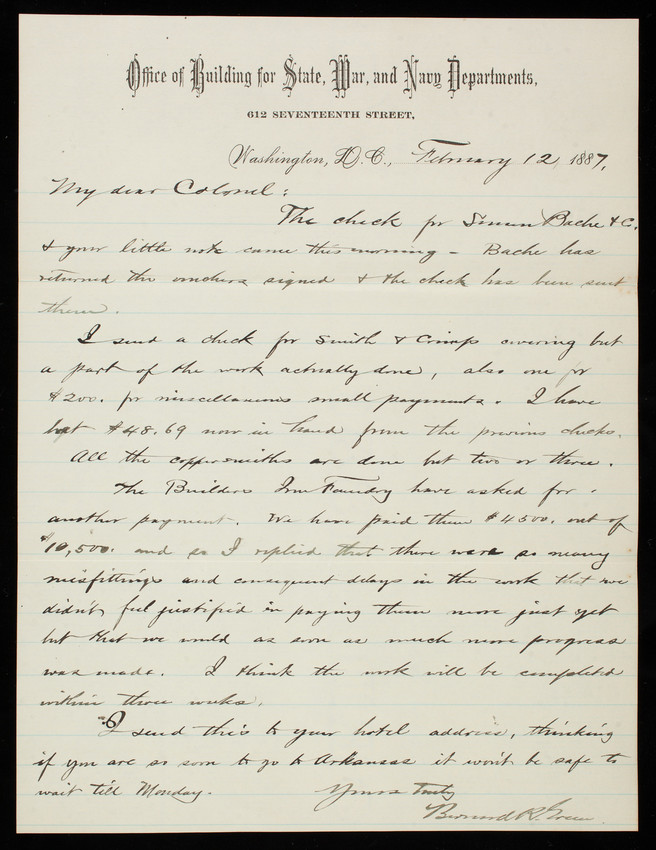 Office of Building for State, War, and Navy Departments,
612 SEVENTEENTH STREET,
Washington, D.C., February 12, 1887.
My dear Colonel:
The check for Simon Bache & C.
& your little note came this morning - Bache has
returned the vouchers signed & the check has been sent
them.
I send a check for Smith & Crimp covering but
a part of the work actually done, also one for
$200. for miscellaneous small payments. I have
but $48.69 now in hand from the previous checks.
All the coppersmiths are done but two or three.
The Builders Iron Foundry have asked for
another payment. We have paid them $4500. out of
$10,500. and so I replied that there were so many
misfittings and consequent delays in the work that we
didn't feel justified in paying them more just yet
but that we would as soon as much more progress
was made. I think the work will be completed
within three weeks.
I send this to your hotel address, thinking
if you are so soon to go to Arkansas it won't be safe to
wait till Monday.
Yours truly
Bernard R. Green